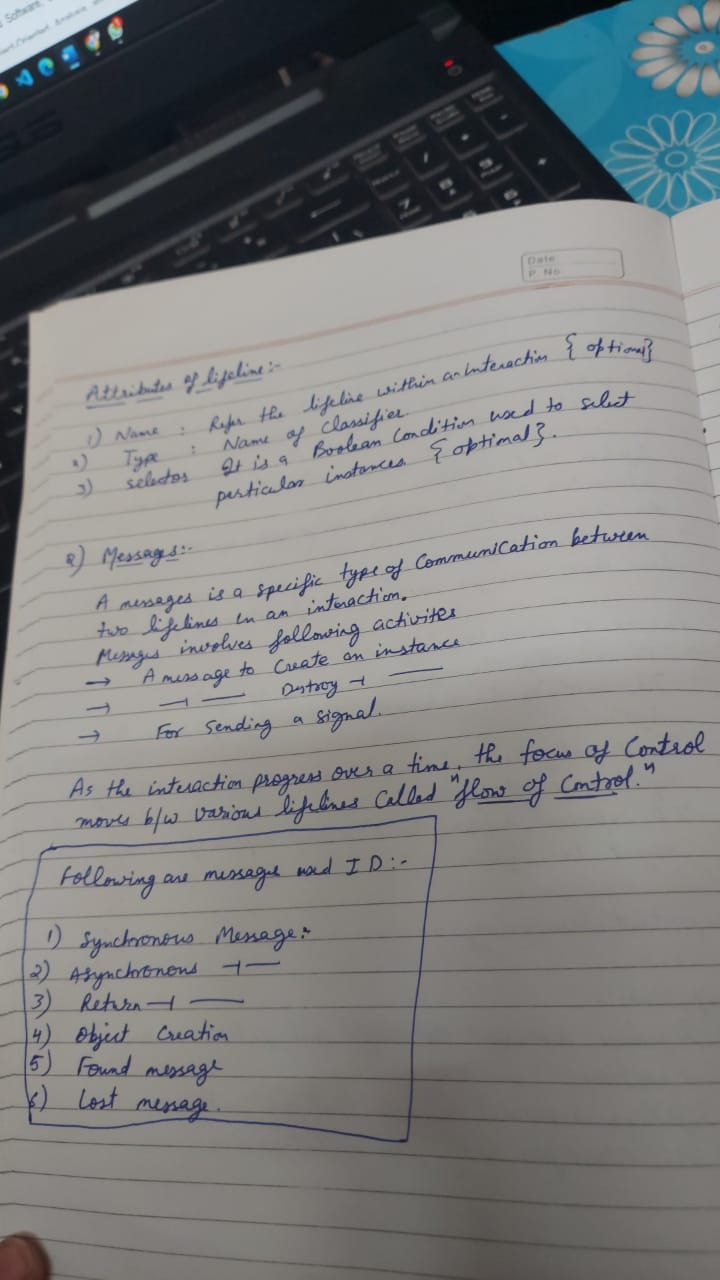 Software,
Date
P. No.
Attributes of lifeline:-
1) Name : Refer the lifeline within an Interaction { optional}
2) Type : Name of Classifier.
3) selector It is a Boolean Condition used to select
particular instances { optimal}.
2) Messages:-
A messages is a specific type of Communication between
two lifelines in an interaction.
Messages involves following activites
→ A message to Create an instance
→ —〃— Destroy —〃—
→ For Sending a signal.
As the interaction progress over a time, the focus of Control
moves b/w various lifelines Called "flow of Control."
Following are messages used I D:-
1) Synchronous Message:
2) Asynchronous —〃—
3) Return —〃—
4) Object Creation
5) Found message
6) Lost message.